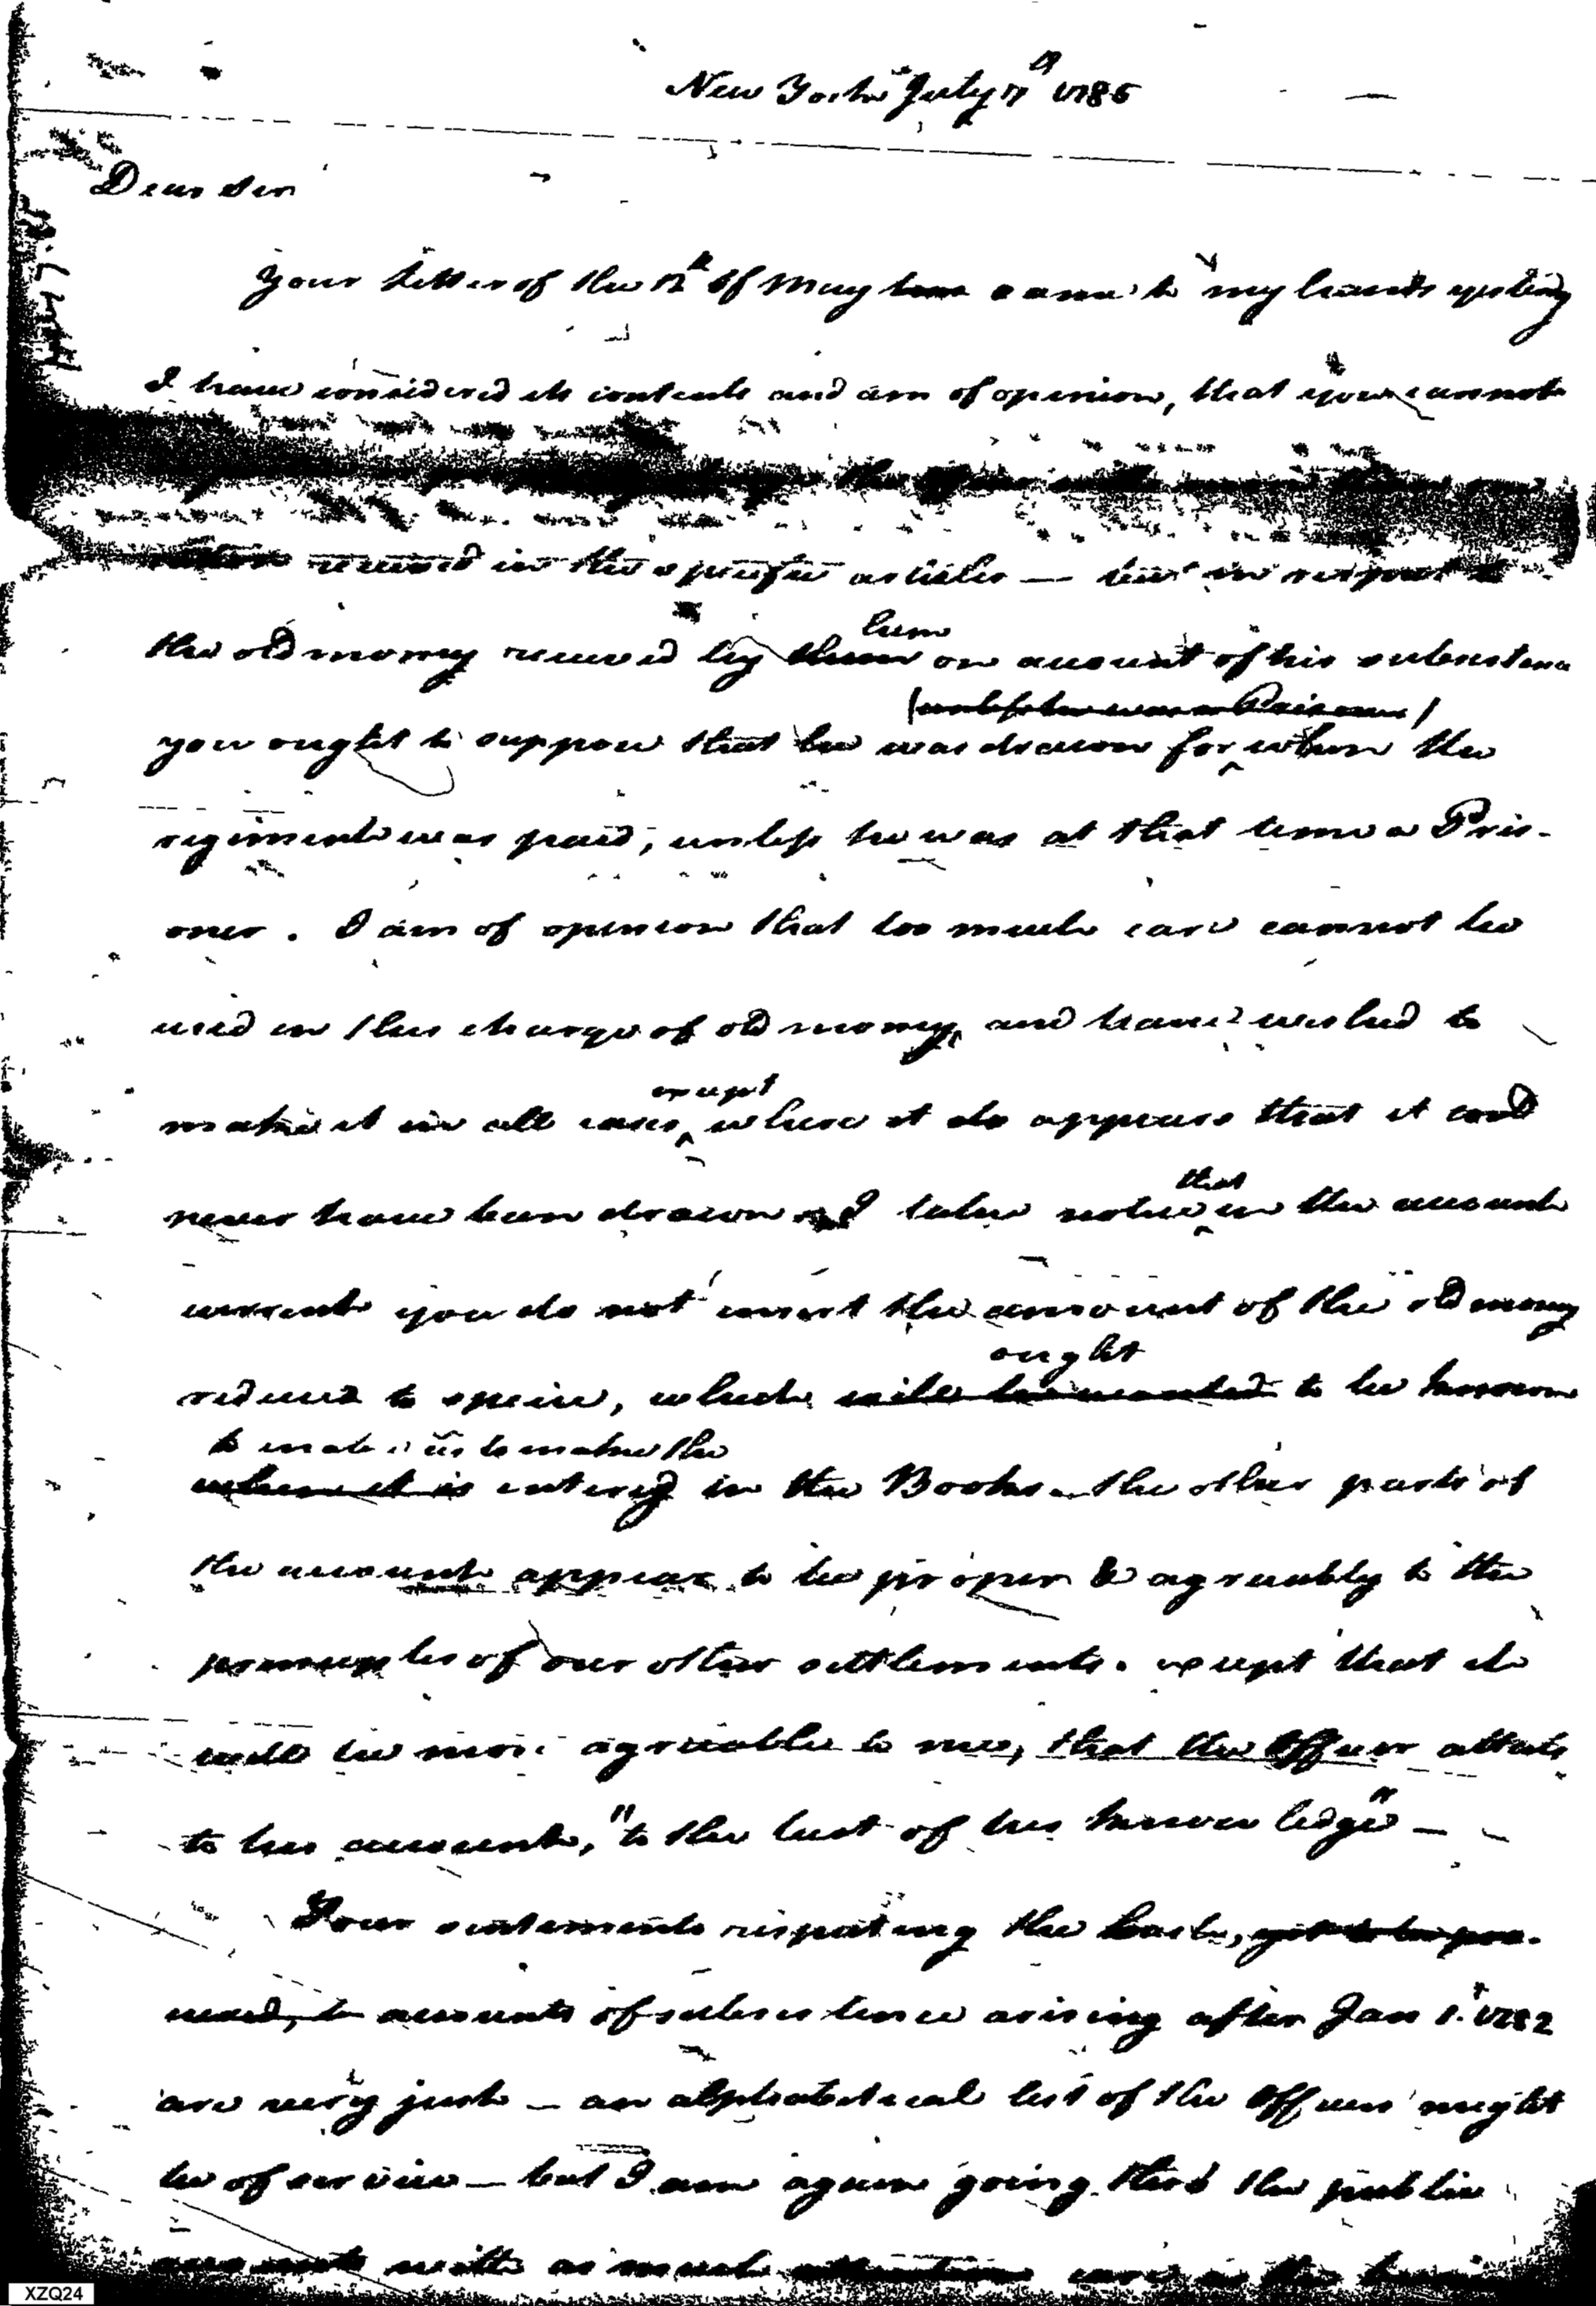 New York July 7th 1786
Dear Sir
Your Letter of the 12th of May came to my hands yesterday
I have considered its contents and am of opinion, that you cannot
the officer with
received in the specific articles — but in respect to
him
the old money received by them on account of his subsistence
(unless he was a Prisoner)
you ought to suppose that he was drawn for when the
regiment was paid, unless he was at that time a Pris-
oner. I am of opinion that too much care cannot be
used in this charge of old money, and have wished to
except
make it in all cases, where it do appears that it could
never have been drawn. I take notice in the account
that
current you do not insert the amount of the old money
ought
reduced to specie, which will be wanted to be known
to make the
when it is entered in the Books. the other parts of
the account appear to be proper & agreeably to the
principles of our other settlements. except that it
will be more agreeable to me, that the Officer attests
to his account, "to the best of his knowledge" —
Your sentiments respecting the
accounts of subsistence arising after Jan 1st 1782
are very just — an alphabetical list of the Officers might
be of service — but I am again going thro the public
accounts with as much attention care
XZQ24